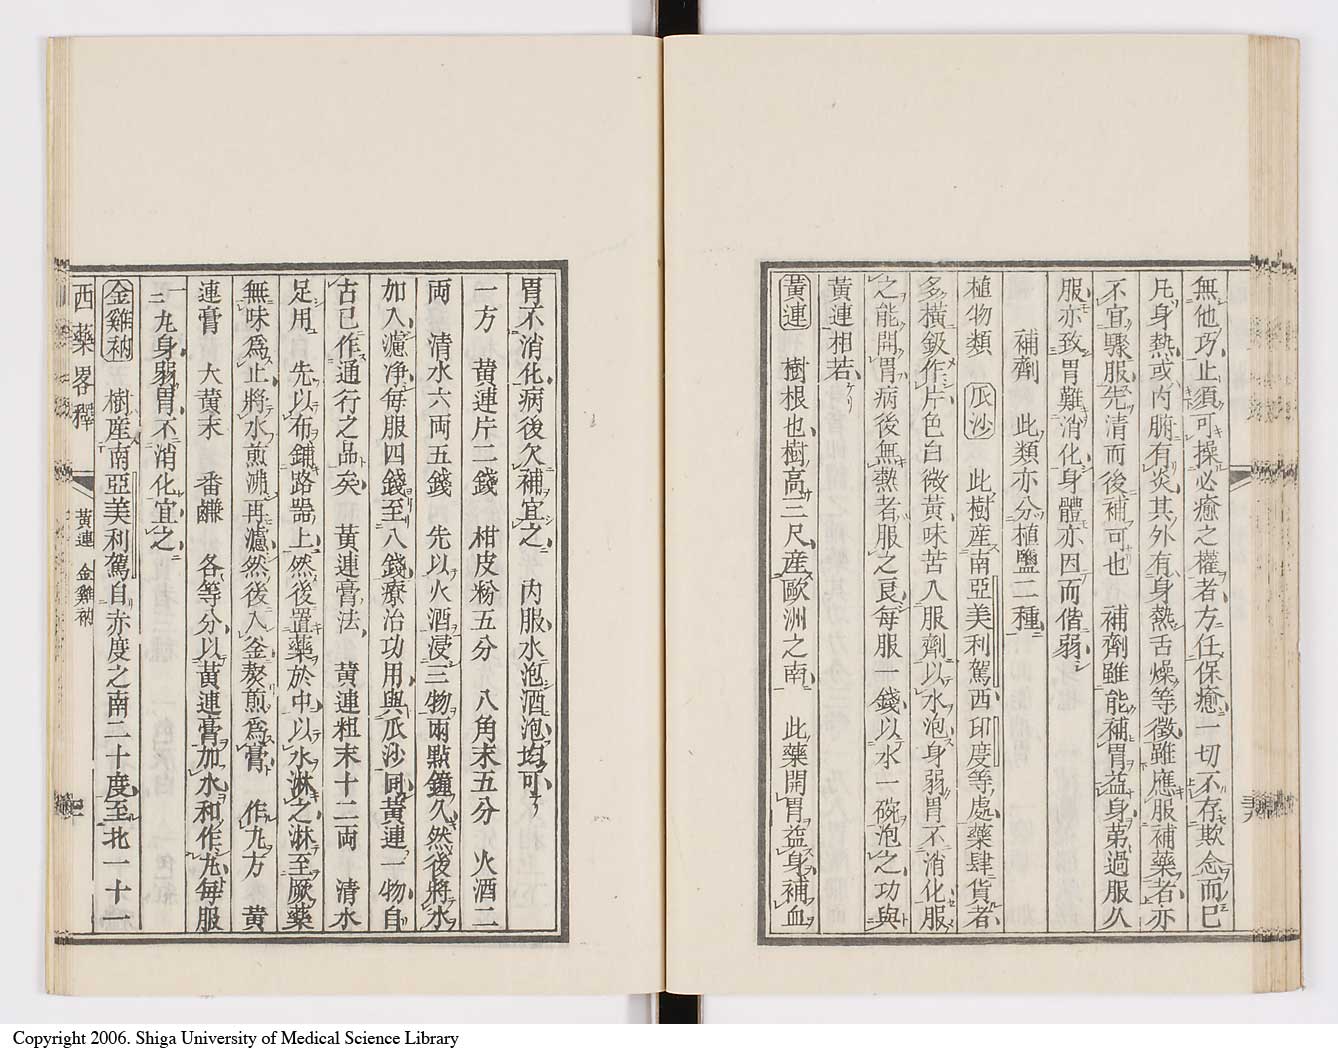 無他巧止須可操必癒之權者方任保癒一切不存欺念而已
凡身熱或內腑有炎其外有身熱舌燥等徵雖應服補藥者亦
不宜驟服先清而後補可也　補劑雖能補胃益身苐過服久
服亦致胃難消化身體亦因而偕弱
補劑　此類亦分植鹽二種
植物類　瓜沙　此樹產南亞美利駕西印度等處藥肆貨者
多橫鈒作片色白微黃味苦入服劑以水泡身弱胃不消化服
之能開胃病後無熱者服之良每服一錢以水一碗泡之功與
黃連相若
黃連　樹根也樹高三尺產歐洲之南　此藥開胃益身補血
胃不消化病後欠補宜之　內服水泡酒泡均可
一方　黃連片二錢　柑皮粉五分　八角末五分　火酒二
両　清水六両五錢　先以火酒浸三物兩點鐘久然後將水
加入濾净每服四錢至八錢療治功用與瓜沙同黃連一物自
古已作通行之品矣　黃連膏法　黃連粗末十二両　清水
足用　先以布鋪路噐上然後置藥於中以水淋之淋至厥藥
無味爲止將水煎沸再濾然後入釜熬煎爲膏　作丸方　黃
連膏　大黃末　番鹻　各等分以黃連膏加水和作丸每服
一二丸身弱胃不消化宜之
金雞衲　樹產南亞美利駕自赤度之南二十度至北一十一
西藥畧釋　黃連　金雞衲
Copyright 2006. Shiga University of Medical Science Library